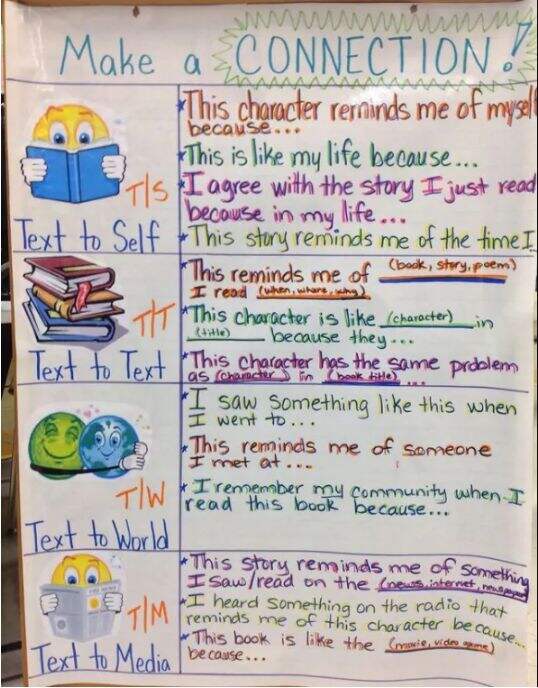 Make a CONNECTION!
T/S
Text to Self
* This character reminds me of myself
because...
* This is like my life because...
* I agree with the story I just read
because in my life...
* This story reminds me of the time I
T/T
Text to Text
* This reminds me of (book, story, poem)
I read (when, where, why)
* This character is like (character) in
(title) because they...
* This character has the same problem
as (character) in (book title)...
T/W
Text to World
* I saw something like this when
I went to...
* This reminds me of someone
I met at...
* I remember my community when I
read this book because...
T/M
Text to Media
* This story reminds me of something
I saw/read on the (news, internet, newspaper)
* I heard something on the radio that
reminds me of this character because...
* This book is like the (movie, video game)
because...